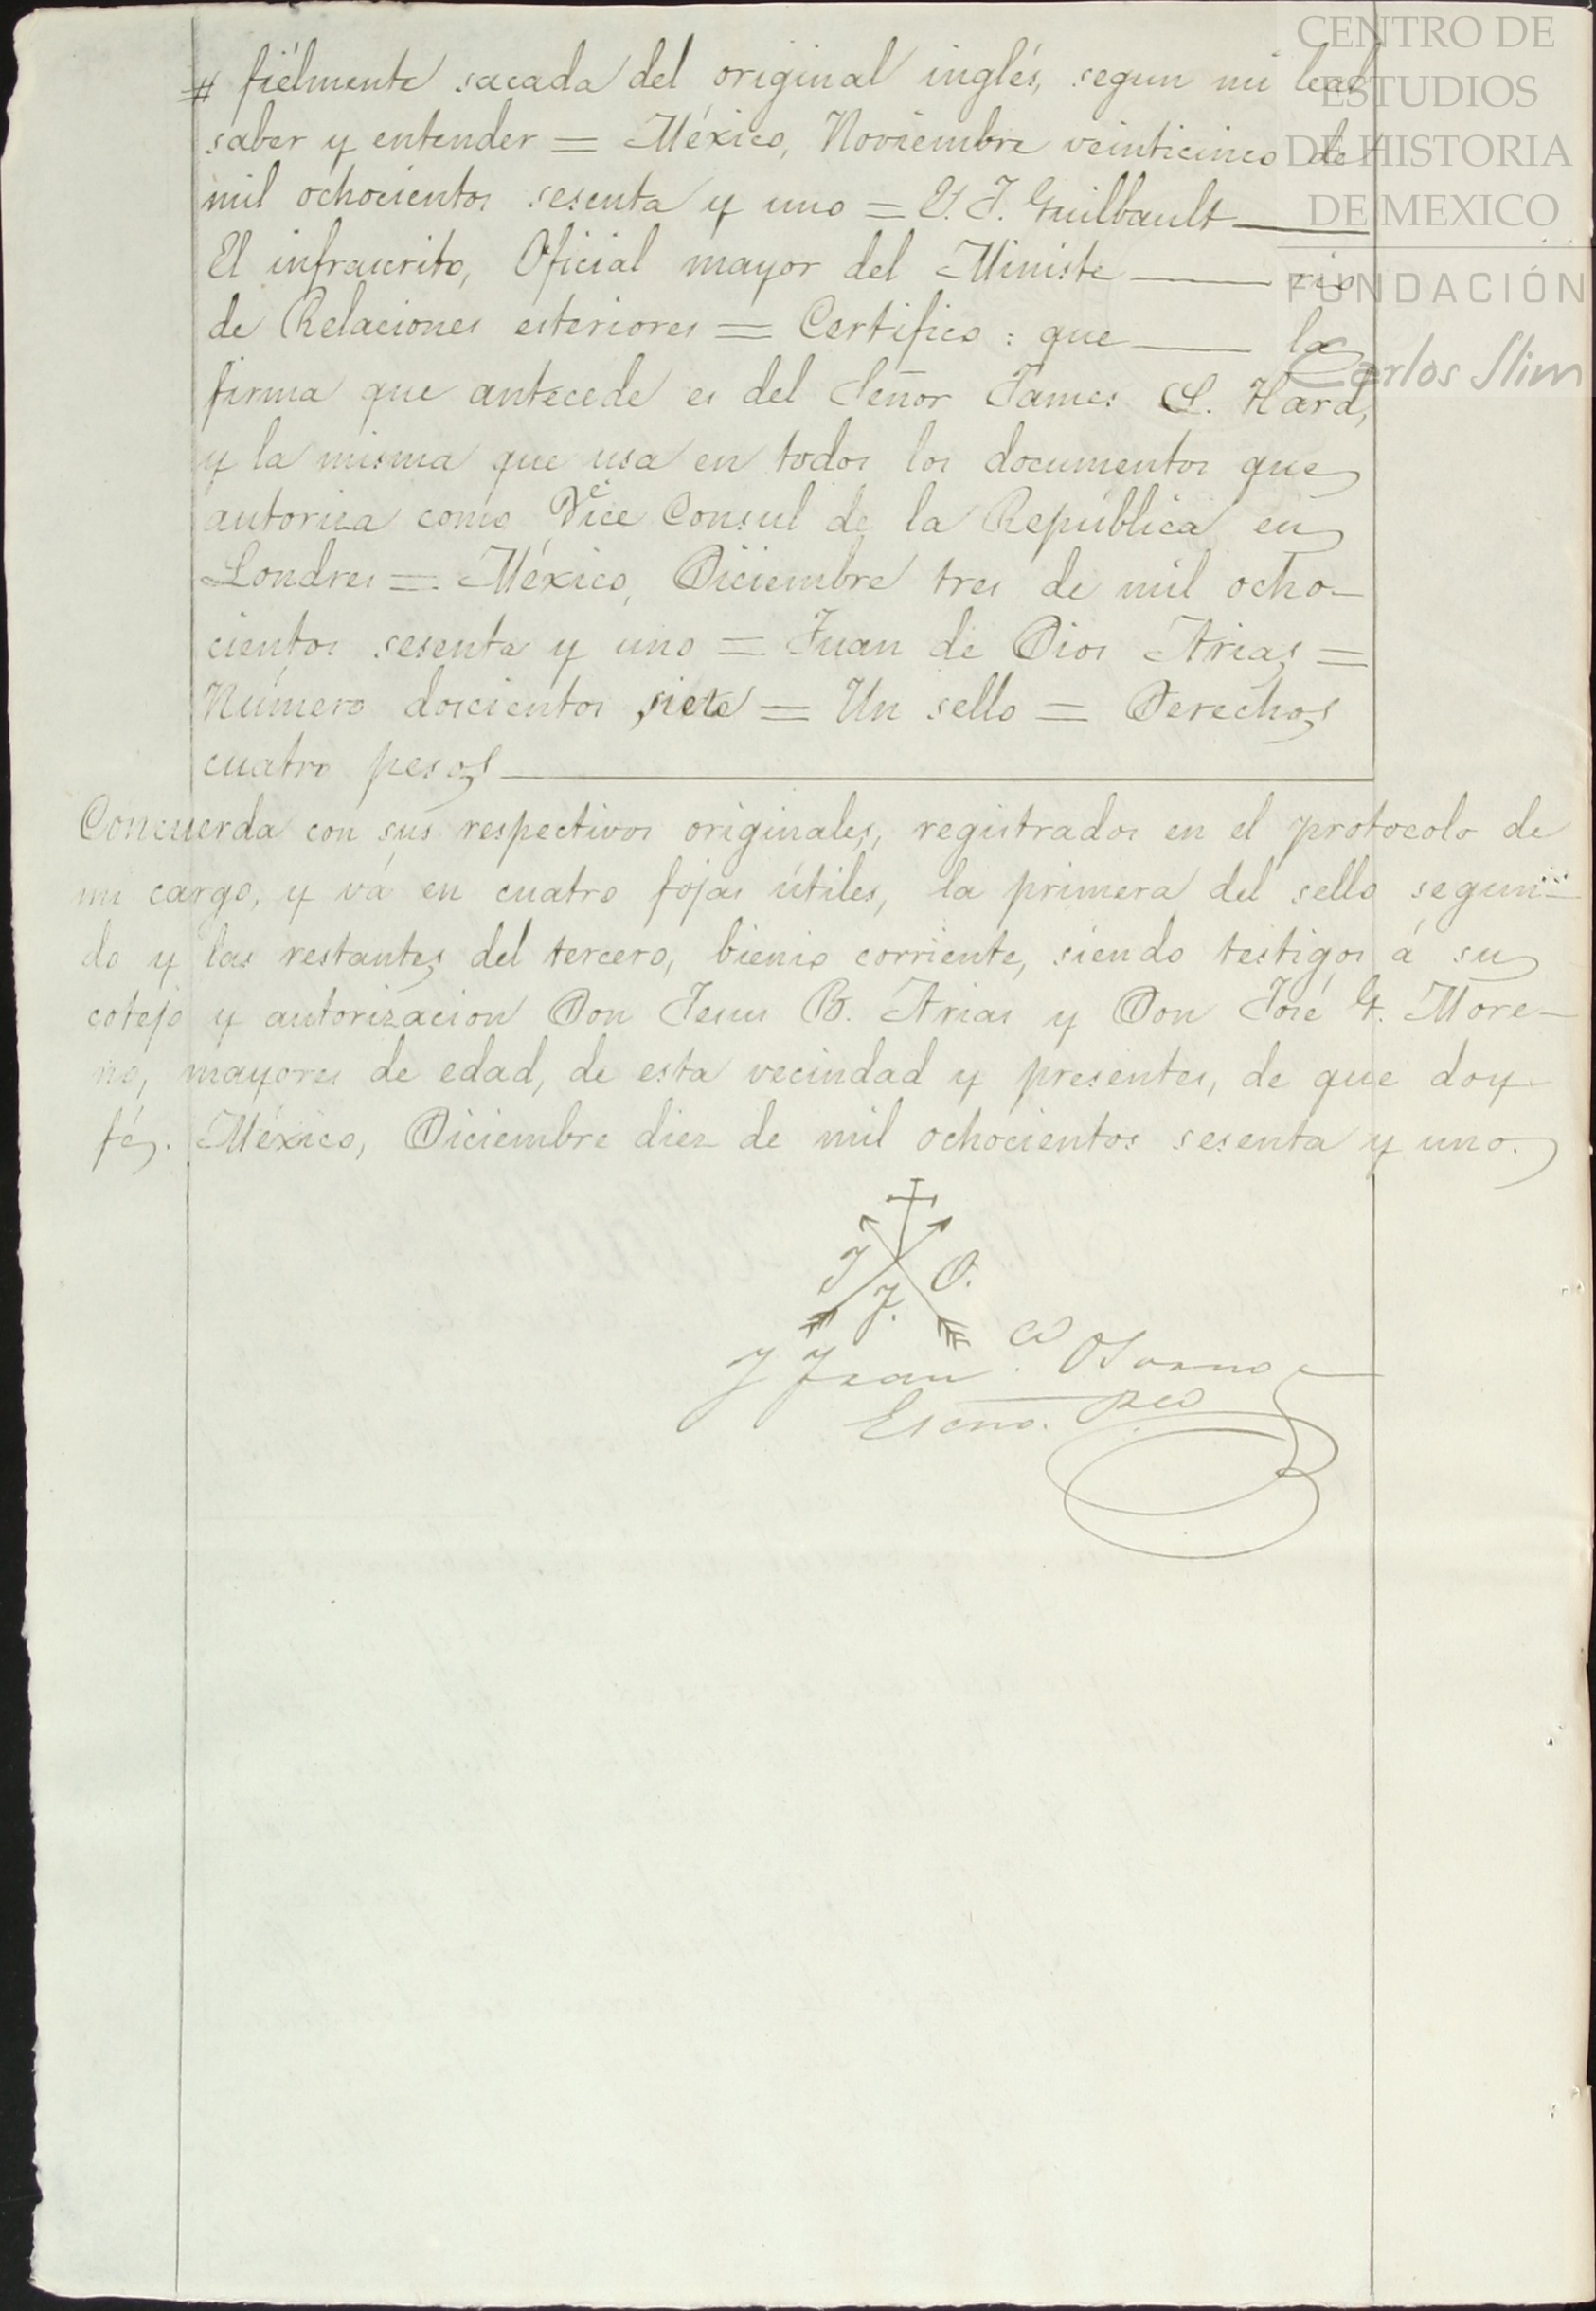 CENTRO DE
ESTUDIOS
DE HISTORIA
DE MEXICO
FUNDACIÓN
Carlos Slim
# fiélmente sacada del original inglés, segun mi leal
saber y entender = México, Noviembre veinticinco de
mil ochocientos sesenta y uno = E. J. Guilbault
El infrascrito, Oficial mayor del Ministe rio
de Relaciones esteriores = Certifico : que la
firma que antecede es del Señor James S. Hard,
y la misma que usa en todos los documentos que
autoriza como Vice Consul de la República en
Londres = México, Diciembre tres de mil ocho-
cientos sesenta y uno = Juan de Dios Arias =
Número doscientos siete = Un sello = Derechos
cuatro pesos
Concuerda con sus respectivos originales, registrados en el protocolo de
mi cargo, y vá en cuatro fojas útiles, la primera del sello segun-
do y las restantes del tercero, bienio corriente, siendo testigos á su
cotejo y autorizacion Don Jesus B. Arias y Don José G. More-
no, mayores de edad, de esta vecindad y presentes, de que doy
fé. México, Diciembre diez de mil ochocientos sesenta y uno.
J J. O.
J Fran.co Osorno
Escno. pco